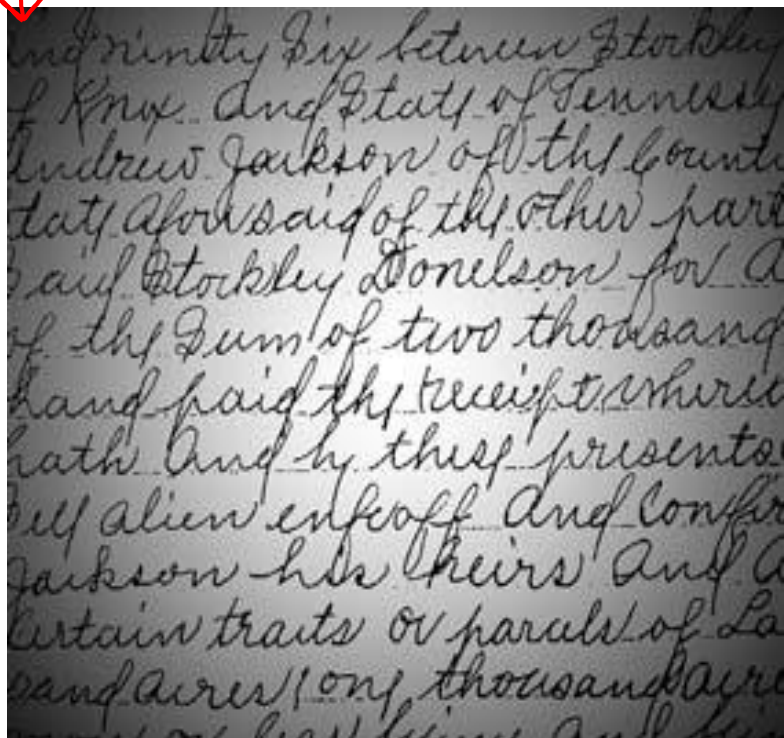 and ninety Six between Stockley
of Knox and State of Tennesse
Andrew Jackson of the Count
tate aforesaid of the other part
said Stockley Donelson for a
of the Sum of two thousand
hand paid the receipt where
hath And by these presents
sell alien enfeoff And Confir
Jackson his heirs And a
Certain traits or parcels of La
sand acres (one thousand acre